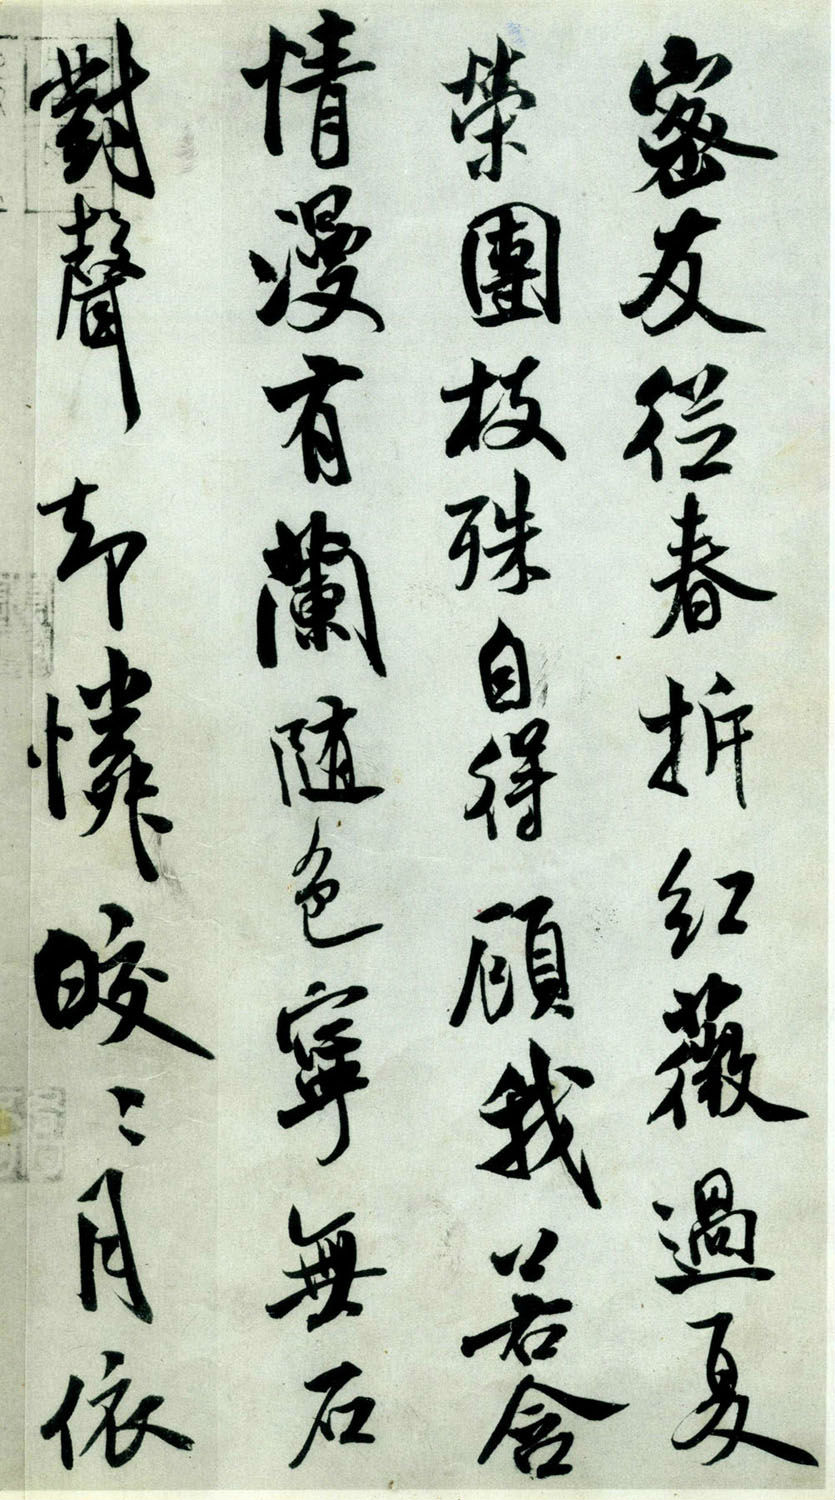 密友從春拆紅薇過夏
榮團枝殊自得顧我若含
情漫有蘭随色寧無石
對聲却憐皎〻月依